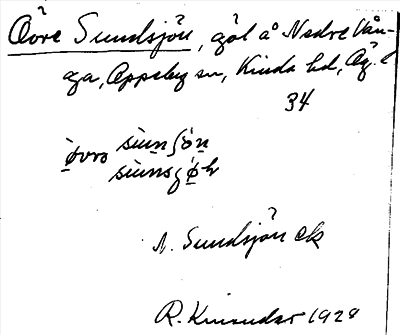 Övre Sundsjön, göl å Nedre Vån-
ga, Oppeby sn, Kinda hd, Ög. l
34
övro siunʃön
siunsgöh
N. Sundsjön ek
R. Kinander 1928